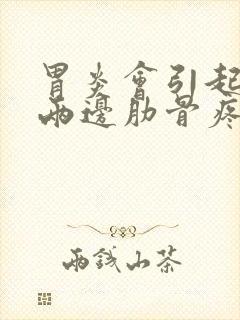 胃炎會引起
兩邊肋骨疼
兩錢山茶